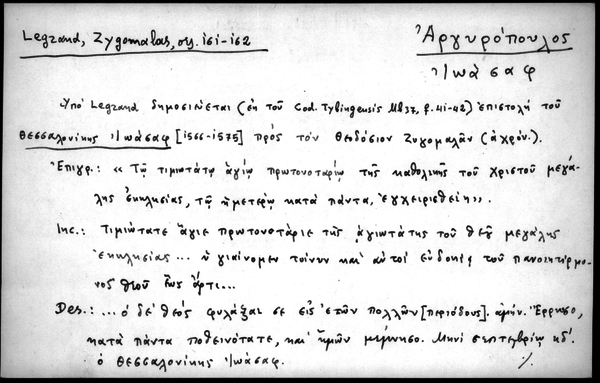 Legrand, Zygomalas, σσ. 161-162
Ἀργυρόπουλος
Ἰωάσαφ
Ὑπὸ Legrand δημοσιεύεται (ἐκ τοῦ Cod. Tybingensis Mb 37, f. 41-42) ἐπιστολὴ τοῦ
Θεσσαλονίκης Ἰωάσαφ [1566-1575] πρὸς τὸν Θεοδόσιον Ζυγομαλᾶν (ἀχρόν.).
Ἐπιγρ.: «Τῷ τιμιωτάτῳ ἁγίῳ πρωτονοταρίῳ τῆς καθολικῆς τοῦ Χριστοῦ μεγά-
λης ἐκκλησίας, τῷ ἡμετέρῳ κατὰ πάντα, ἐγχειρισθείη».
Inc.: Τιμιώτατε ἅγιε πρωτονοτάριε τῆς ἁγιωτάτης τοῦ Θεοῦ μεγάλης
ἐκκλησίας... ὑγιαίνομεν τοίνυν καὶ αὐτοὶ εὐδοκίᾳ τοῦ πανοικτίρμο-
νος Θεοῦ ἕως ἄρτι...
Des.: ... ὁ δὲ Θεὸς φυλάξαι σε εἰς ἐτῶν πολλῶν [περιόδους]. ἀμήν. Ἔρρωσο,
κατὰ πάντα ποθεινότατε, καὶ ἡμῶν μέμνησο. Μηνὶ σεπτεμβρίῳ κδ΄.
ὁ Θεσσαλονίκης Ἰωάσαφ. ./.